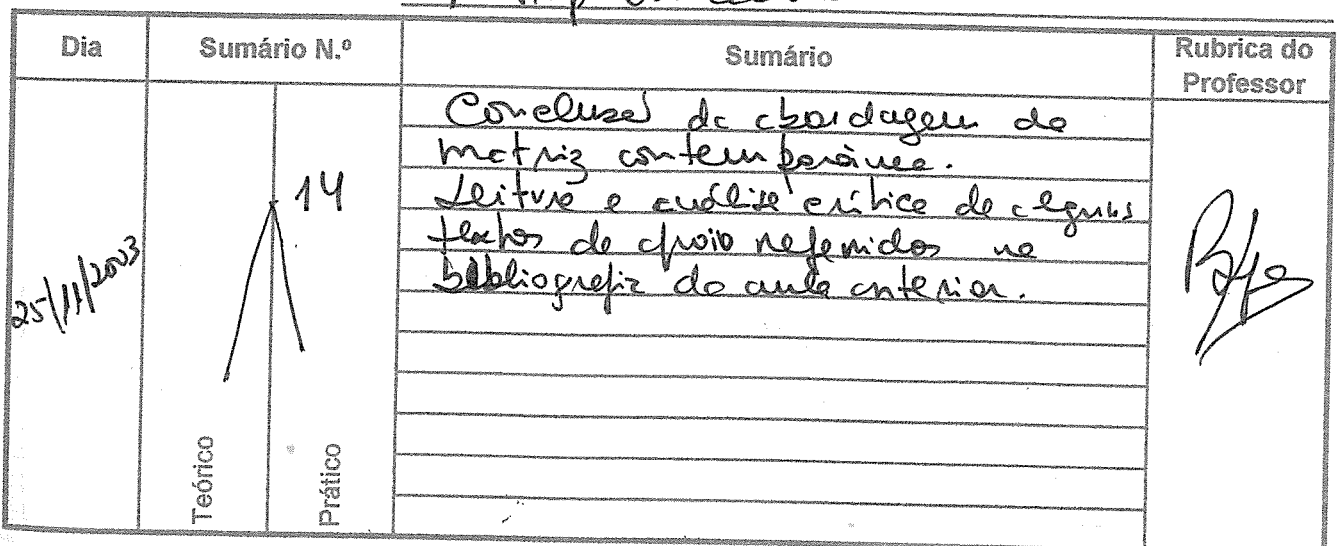 Dia
Sumário N.º
Sumário
Rubrica do
Professor
25/11/2003
14
Conclusão da abordagem da
matriz contemporânea.
Leitura e análise crítica de alguns
textos de apoio referidos na
bibliografia da aula anterior.
Teórico
Prático